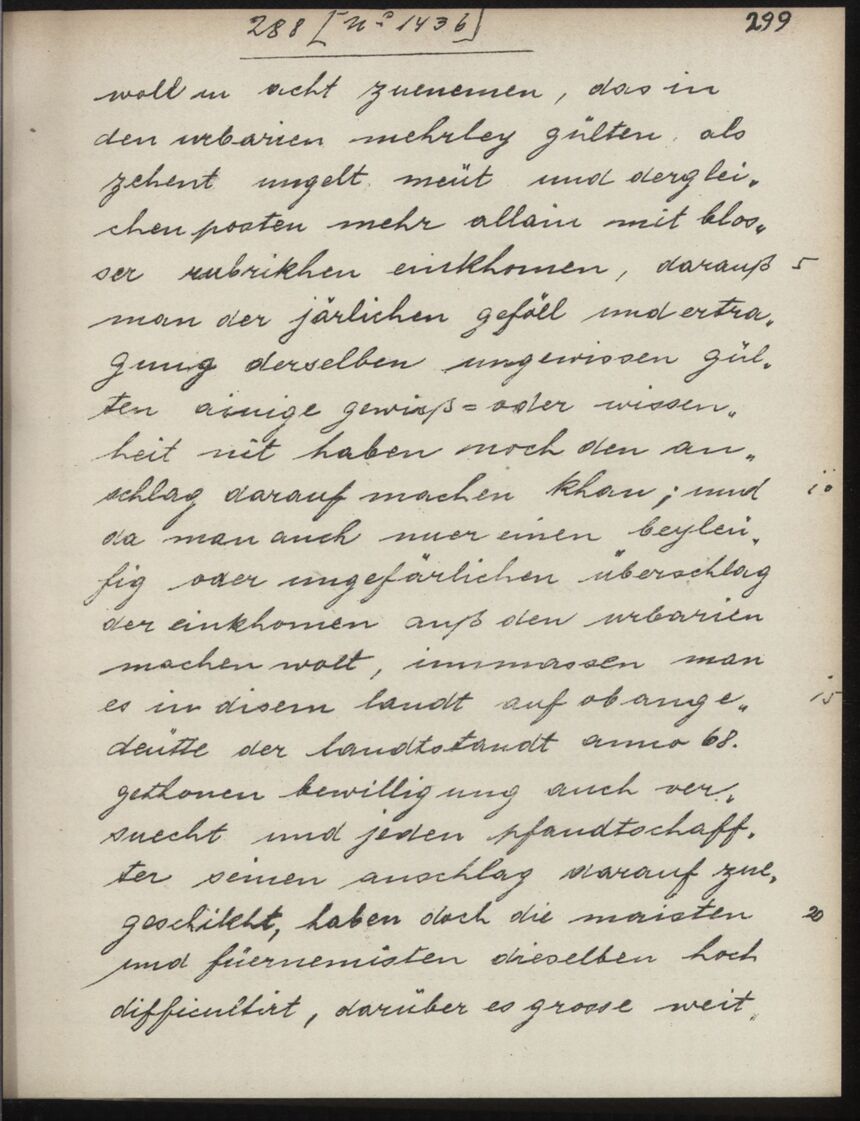 288 [No 1436] 299
woll in acht zuenemen, das in
den urbarien mehrley gülten als
zehent ungelt meüt und derglei„
chen posten mehr allain mit blos„
ser rubrikhen einkhomen, darauß 5
man der järlichen geföll und ertra„
gung derselben ungewissen gül„
ten ainige gewiß= oder wissen„
heit nit haben noch den an„
schlag darauf machen khan; und 10
da man auch nuer einen beyleü„
fig oder ungefärlichen überschlag
der einkhomen auß den urbarien
machen wolt, inmassen man
es in disem landt auf obange„ 15
deütte der landtstandt anno 68.
gethonen bewilligung auch ver„
suecht und jeden pfandtschaff„
ter seinen anschlag darauf zue„
geschikht, haben doch die maisten 20
und füernemisten dieselben hoch
difficultirt, darüber es grosse weit„